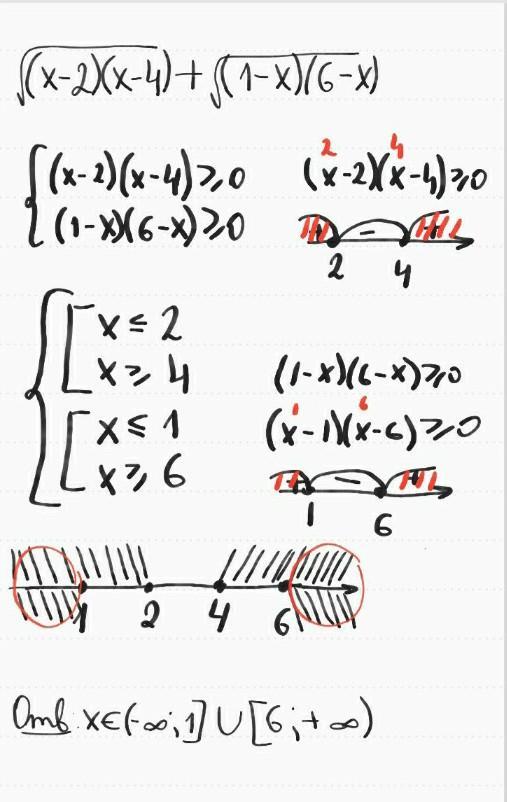 √(x-2)(x-4) + √(1-x)(6-x)
{ (x-2)(x-4) ⩾ 0
(1-x)(6-x) ⩾ 0
2 4
(x-2)(x-4) ⩾ 0
+ - +
2 4
{ [ x ≤ 2
x ⩾ 4
[ x ≤ 1
x ⩾ 6
(1-x)(6-x) ⩾ 0
1 6
(x-1)(x-6) ⩾ 0
+ - +
1 6
1 2 4 6
Отв. x∈(-∞;1] ∪ [6;+∞)